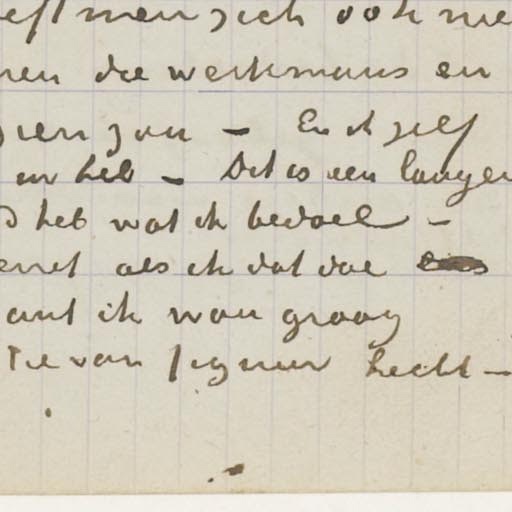 eeft men zich ook nie
nen die werkmans en
zien zou — En ik zelf
in heb — Dit is een langen
d heb wat ik bedoel —
enst als ik dat doe
ant ik wou graag
tie van figuur hecht —